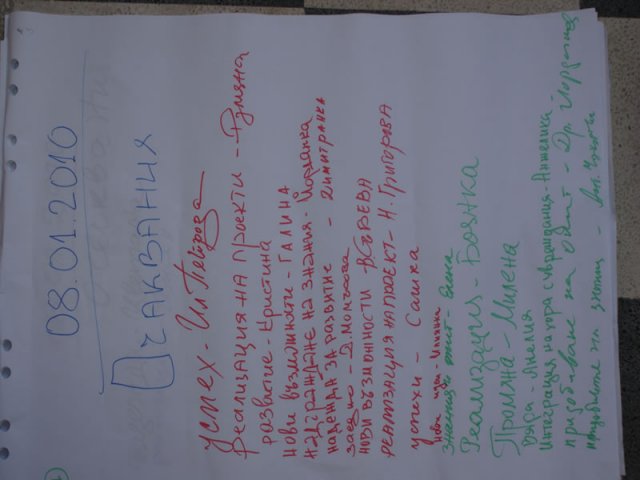 08.01.2010
ОЧАКВАНИЯ
Успех - Ил. Петрова
Реализация на проекти - Румяна
развитие - Кристина
Нови възможности - ГАЛИНА
Надграждане на знания - Йорданка
НАДЕЖДА ЗА РАЗВИТИЕ - ДИМИТРАНКА
заедно - Д.
НОВИ ВЪЗМОЖНОСТИ В. СЪБЕВА
РЕАЛИЗАЦИЯ НА ПРОЕКТ - Н. Григорова
успехи - Сашка
Нови идеи -
Знания, опит - Елена
Реализация - Боянка
Промяна - Милена
Вяра - Анелия
Интеграция на хора с увреждания - Анжелика
придобиване на опит - Др. Йорданов
на знания -